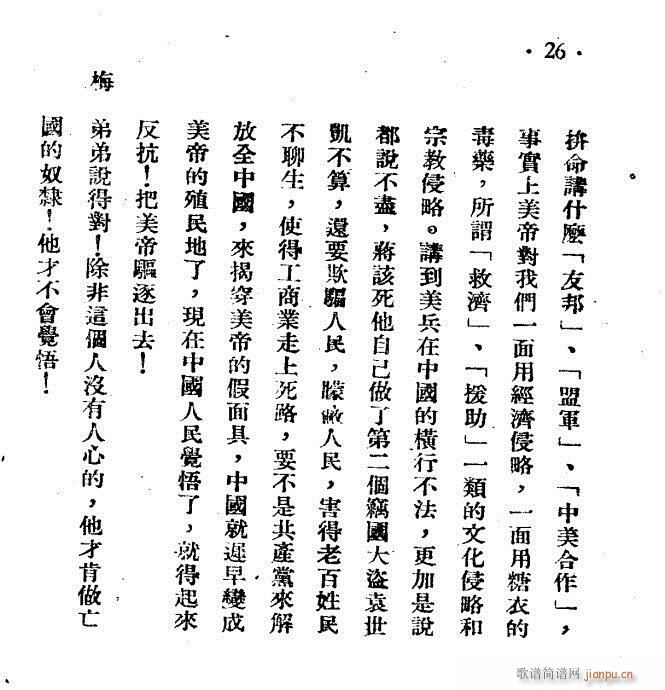 ·26·
拚命講什麼「友邦」、「盟軍」、「中美合作」，
事實上美帝對我們一面用經濟侵略，一面用糖衣的
毒藥，所謂「救濟」、「援助」一類的文化侵略和
宗教侵略。講到美兵在中國的橫行不法，更加是說
都說不盡，蔣該死他自己做了第二個竊國大盜袁世
凱不算，還要欺騙人民，朦蔽人民，害得老百姓民
不聊生，使得工商業走上死路，要不是共產黨來解
放全中國，來揭穿美帝的假面具，中國就遲早變成
美帝的殖民地了，現在中國人民覺悟了，就得起來
反抗！把美帝驅逐出去！
梅　弟弟說得對！除非這個人沒有人心的，他才肯做亡
國的奴隸！他才不會覺悟！
歌谱简谱网
jianpu.cn